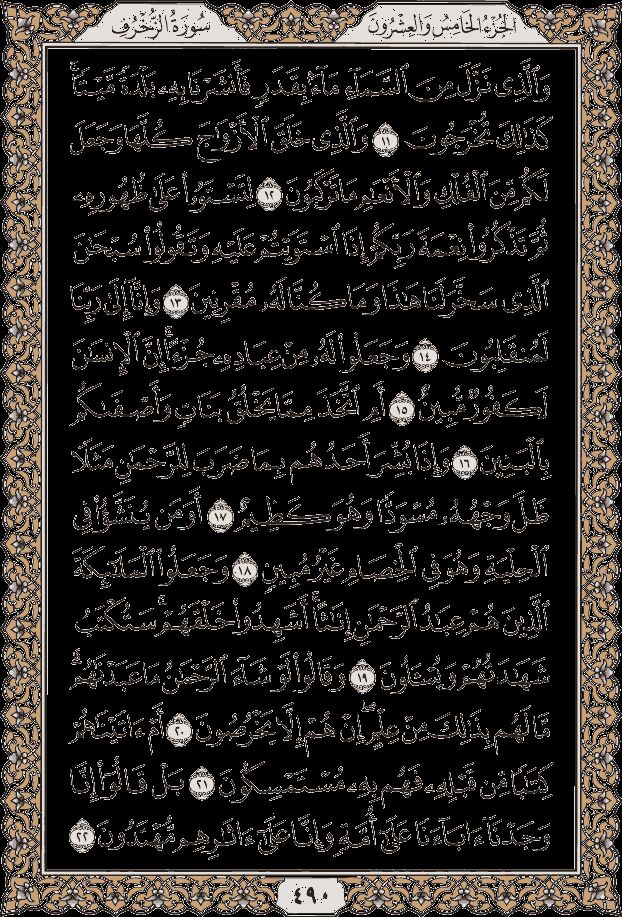 سُورَةُ الزُّخْرُفِ
الجُزْءُ الخَامِسُ وَالعِشْرُونَ
وَٱلَّذِى نَزَّلَ مِنَ ٱلسَّمَآءِ مَآءًۢ بِقَدَرٍ فَأَنشَرْنَا بِهِۦ بَلْدَةً مَّيْتًا ۚ
كَذَٰلِكَ تُخْرَجُونَ ١١ وَٱلَّذِى خَلَقَ ٱلْأَزْوَٰجَ كُلَّهَا وَجَعَلَ
لَكُم مِّنَ ٱلْفُلْكِ وَٱلْأَنْعَٰمِ مَا تَرْكَبُونَ ١٢ لِتَسْتَوُۥا۟ عَلَىٰ ظُهُورِهِۦ
ثُمَّ تَذْكُرُوا۟ نِعْمَةَ رَبِّكُمْ إِذَا ٱسْتَوَيْتُمْ عَلَيْهِ وَتَقُولُوا۟ سُبْحَٰنَ
ٱلَّذِى سَخَّرَ لَنَا هَٰذَا وَمَا كُنَّا لَهُۥ مُقْرِنِينَ ١٣ وَإِنَّآ إِلَىٰ رَبِّنَا
لَمُنقَلِبُونَ ١٤ وَجَعَلُوا۟ لَهُۥ مِنْ عِبَادِهِۦ جُزْءًا ۚ إِنَّ ٱلْإِنسَٰنَ
لَكَفُورٌ مُّبِينٌ ١٥ أَمِ ٱتَّخَذَ مِمَّا يَخْلُقُ بَنَاتٍ وَأَصْفَىٰكُم
بِٱلْبَنِينَ ١٦ وَإِذَا بُشِّرَ أَحَدُهُم بِمَا ضَرَبَ لِلرَّحْمَٰنِ مَثَلًا
ظَلَّ وَجْهُهُۥ مُسْوَدًّا وَهُوَ كَظِيمٌ ١٧ أَوَمَن يُنَشَّؤُا۟ فِى
ٱلْحِلْيَةِ وَهُوَ فِى ٱلْخِصَامِ غَيْرُ مُبِينٍ ١٨ وَجَعَلُوا۟ ٱلْمَلَٰٓئِكَةَ
ٱلَّذِينَ هُمْ عِبَٰدُ ٱلرَّحْمَٰنِ إِنَٰثًا ۚ أَشَهِدُوا۟ خَلْقَهُمْ ۚ سَتُكْتَبُ
شَهَٰدَتُهُمْ وَيُسْـَٔلُونَ ١٩ وَقَالُوا۟ لَوْ شَآءَ ٱلرَّحْمَٰنُ مَا عَبَدْنَٰهُم ۗ
مَّا لَهُم بِذَٰلِكَ مِنْ عِلْمٍ ۖ إِنْ هُمْ إِلَّا يَخْرُصُونَ ٢٠ أَمْ ءَاتَيْنَٰهُمْ
كِتَٰبًا مِّن قَبْلِهِۦ فَهُم بِهِۦ مُسْتَمْسِكُونَ ٢١ بَلْ قَالُوٓا۟ إِنَّا
وَجَدْنَآ ءَابَآءَنَا عَلَىٰٓ أُمَّةٍ وَإِنَّا عَلَىٰٓ ءَاثَٰرِهِم مُّهْتَدُونَ ٢٢
٤٩٠